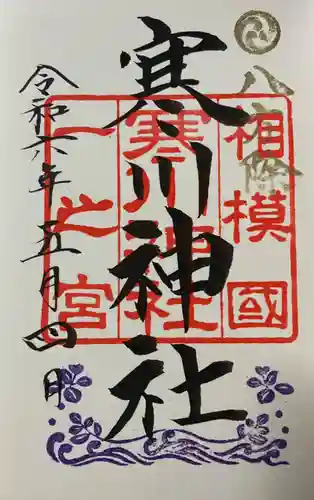 八方除
寒川神社
令和六年五月四日
相模國
寒川神社
一之宮